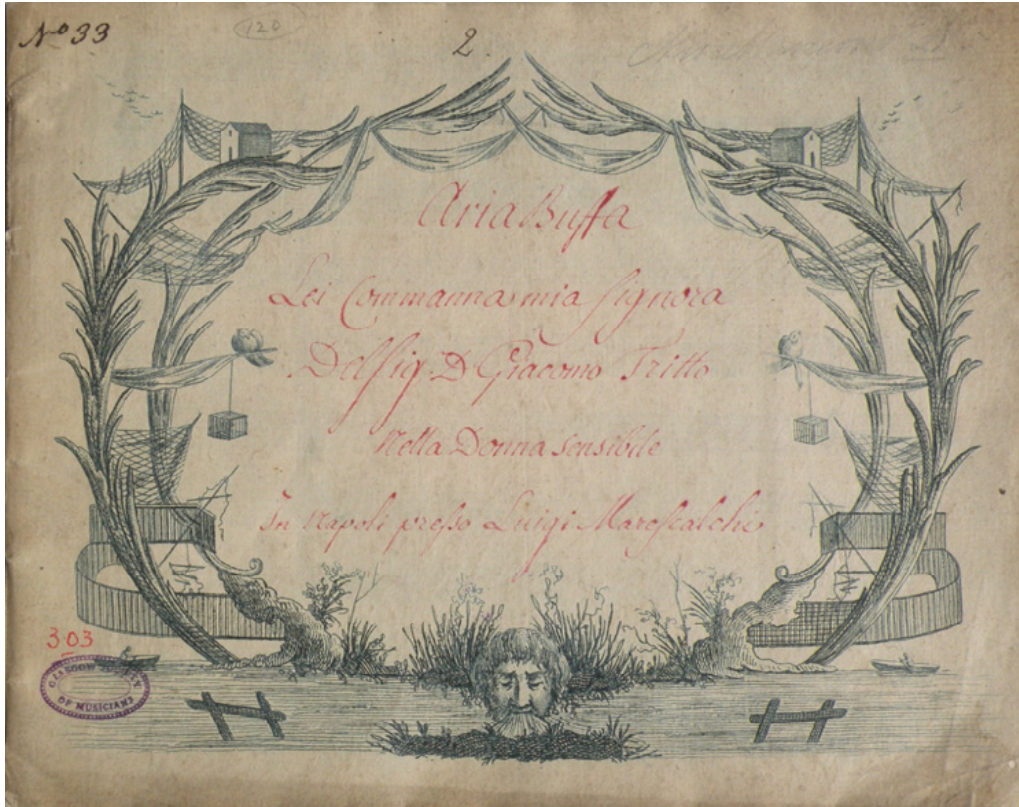 No 33
120
2.
Aria Buffa
Lei Commanna mia Signora
Del Sig. D. Giacomo Tritto
Nella Donna sensibile
In Napoli presso Luigi Marescalchi
303
GLASGOW
OF MUSICIANS